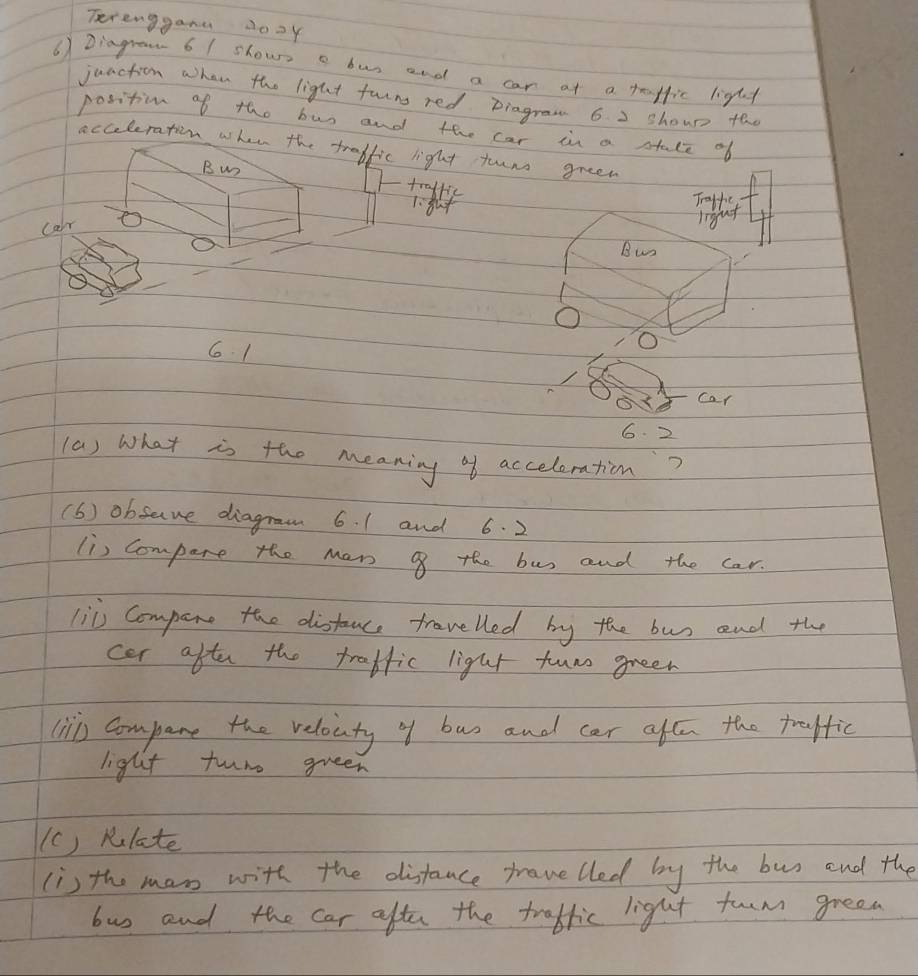 Terengganu 2024
6) Diagram 6.1 shows a bus and a car at a traffic light
junction when the light turns red. Diagram 6.2 shows the
position of the bus and the car in a state of
acceleration when the traffic light turns green
Bus
traffic
light
Car
6.1
Traffic
light
Bus
car
6.2
(a) What is the meaning of acceleration?
(b) observe diagram 6.1 and 6.2
(i) Compare the mass of the bus and the car.
(ii) Compare the distance travelled by the bus and the
car after the traffic light turns green
(iii) Compare the velocity of bus and car after the traffic
light turns green
(c) Relate
(i) the mass with the distance travelled by the bus and the
bus and the car after the traffic light turns green